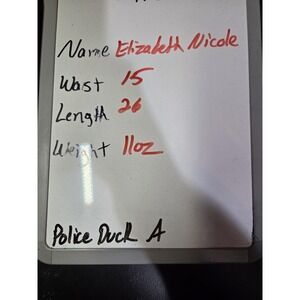 Name Elizabeth Nicole
Wast 15
Length 26
Weight 11oz
Police Duck A